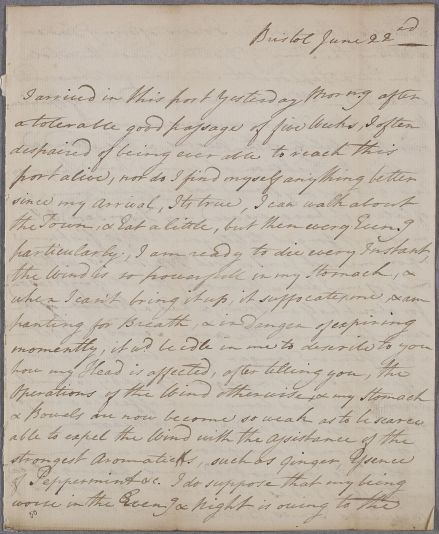 Bristol June 22nd
I arrived in this port Yesterday Morng after
a tolerable good passage of five Weeks, I often
despaired of being ever able to reach this
port alive, nor do I find myself any thing better
since my arrival, Its true, I can walk about
the Town, & Eat a little, but then every Eveng
particularly, I am ready to die every Instant,
the Wind is so powerfull in my Stomach, &
when I can't bring it up, it suffocates me, & am
panting for Breath, & in Danger of expiring
momently, it wd be idle in me to describe to you
how my Head is affected, after telling you, the
Operations of the Wind otherwise, & my Stomach
& Bowels are now become so weak as to be scarce
able to expel the Wind with the assistance of the
strongest Aromaticks, such as Ginger, Essence
of Peppermint &c. I do suppose that my being
worse in the Eveng & Night is owing to the